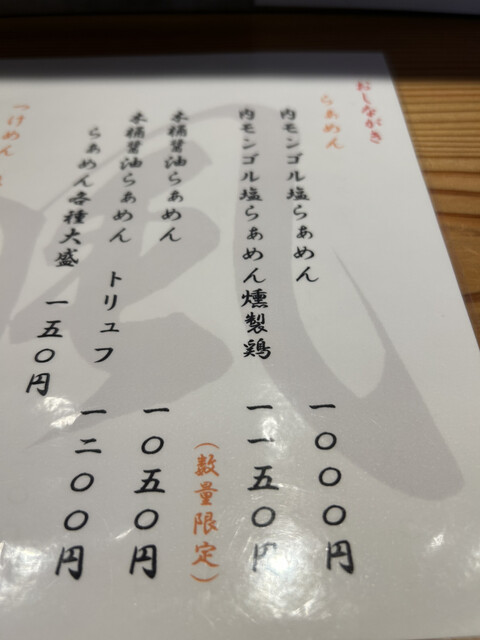 おしながき
らぁめん
内モンゴル塩らぁめん 一〇〇〇円
内モンゴル塩らぁめん燻製鶏 一一五〇円
(数量限定)
木桶醤油らぁめん 一〇五〇円
木桶醤油らぁめん トリュフ 一二〇〇円
らぁめん各種大盛 一五〇円
つけめん